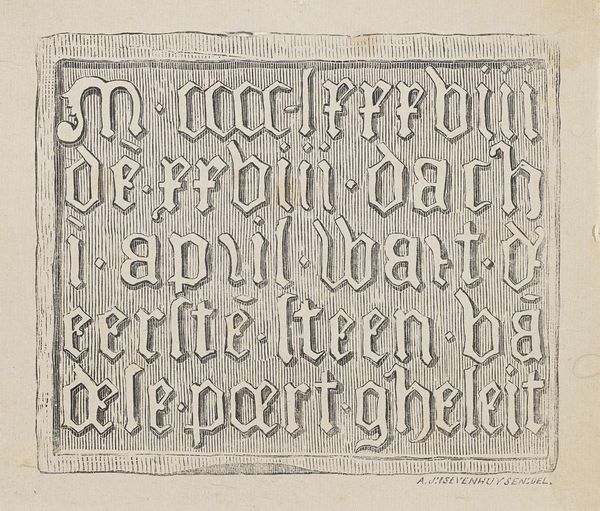 M·cccc-lxxxviii
dē·xxviii·dach
ī·april·wart·d̕
eerstē·steen·vā
dese·poert·gheleit
DEL.